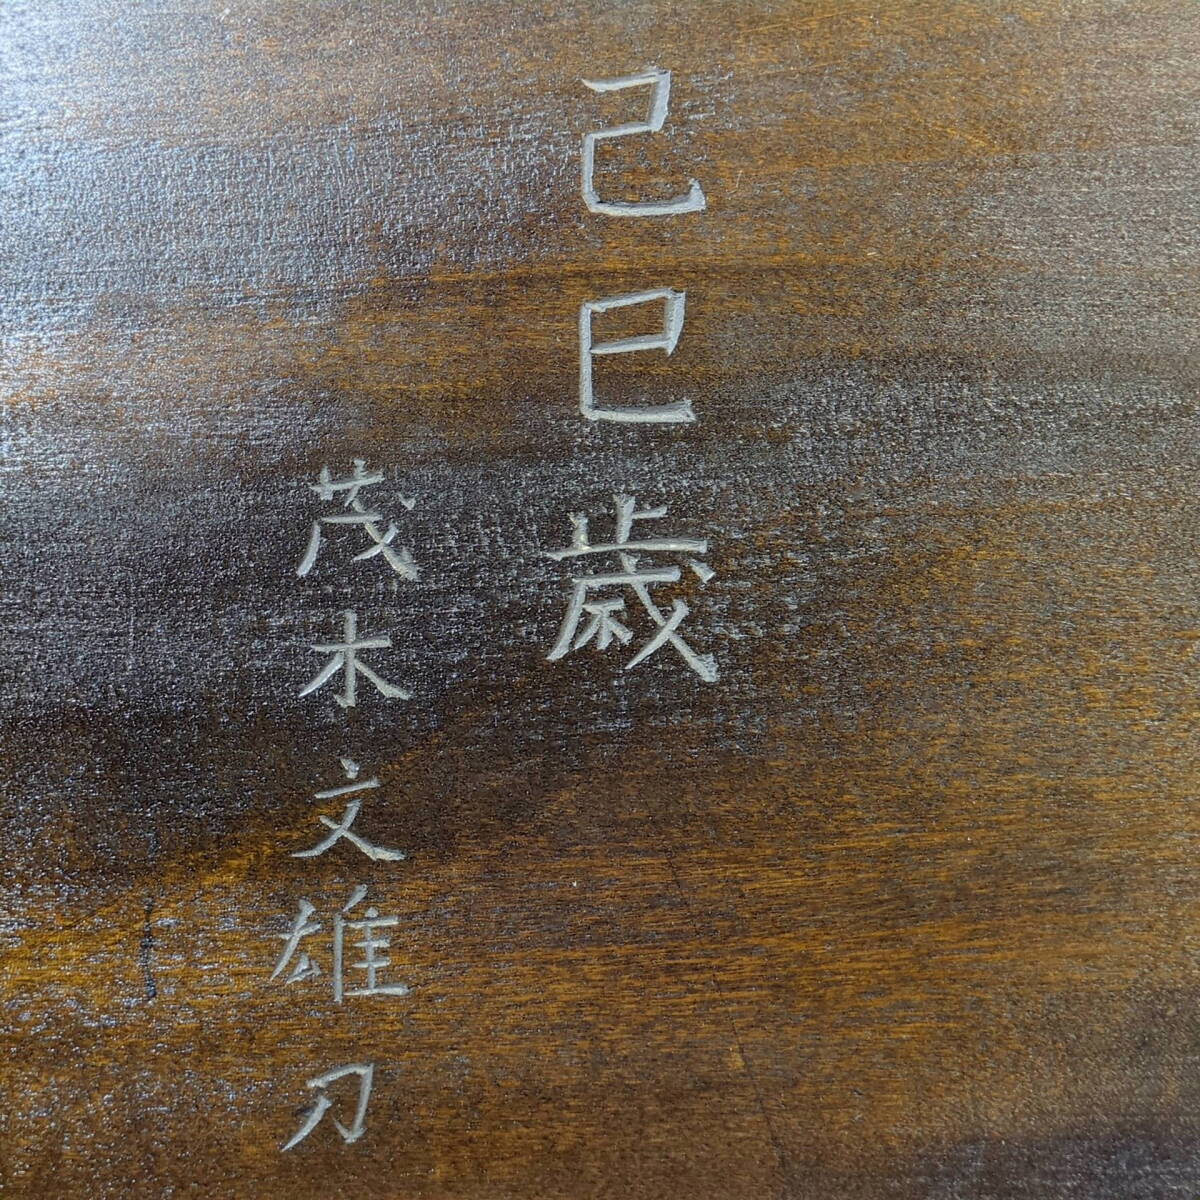 己巳歳
茂木文雄刀